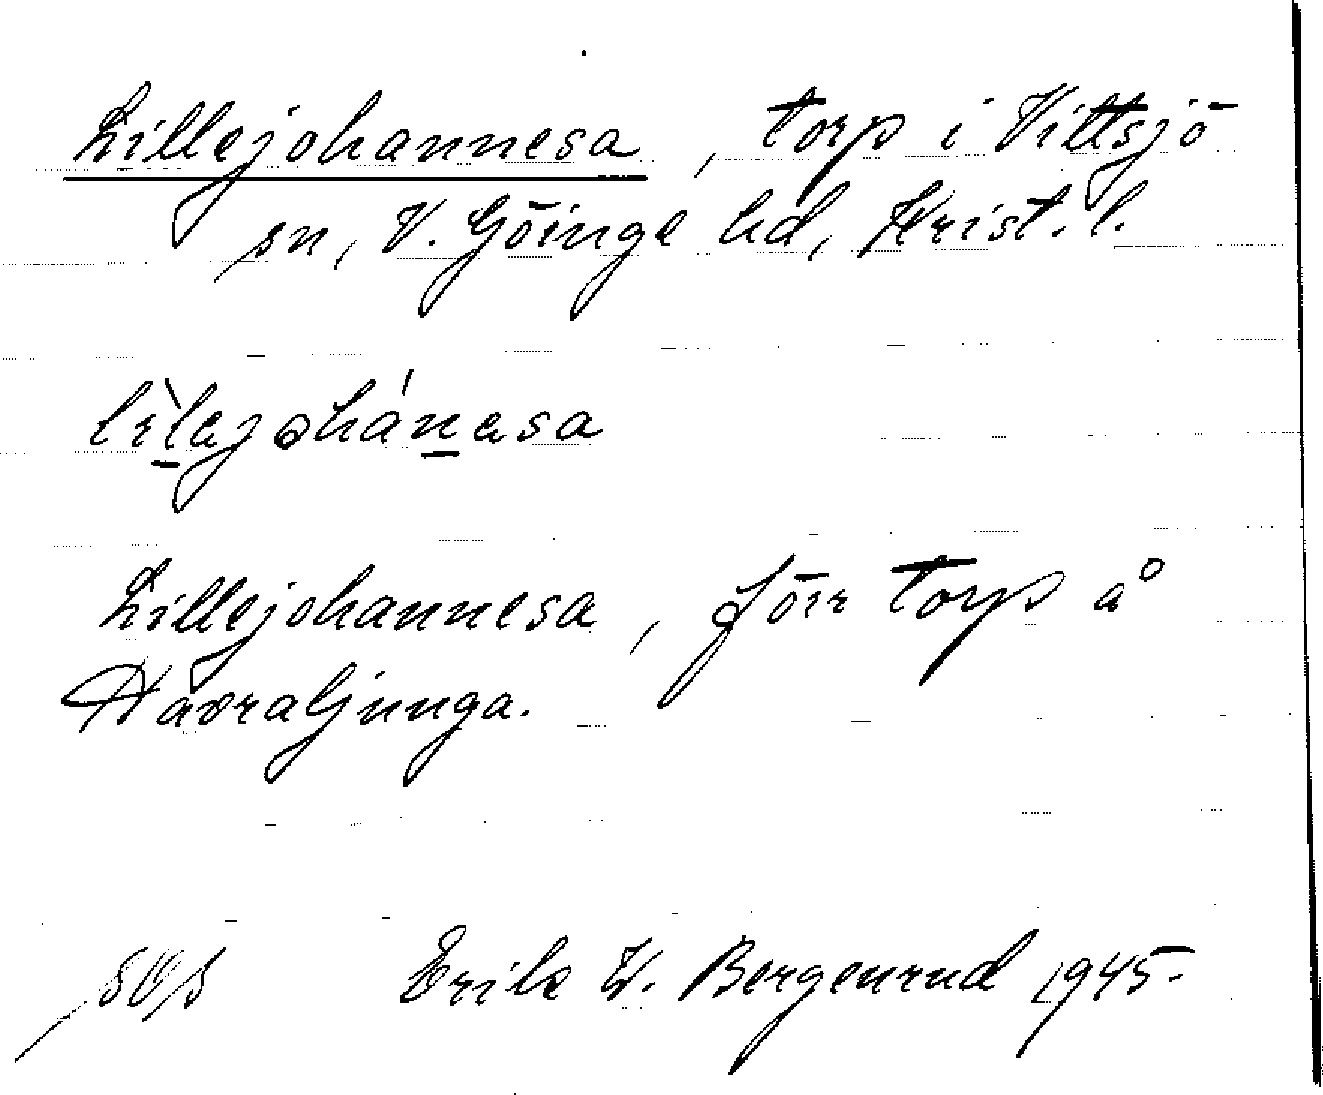 Lillejohannesa, torp i Vittsjö
sn, V. Göinge hd, Krist. l.
lìlejohánesa
Lillejohannesa, förr torp å
Havraljunga.
Erik W. Bergenrud 1945.